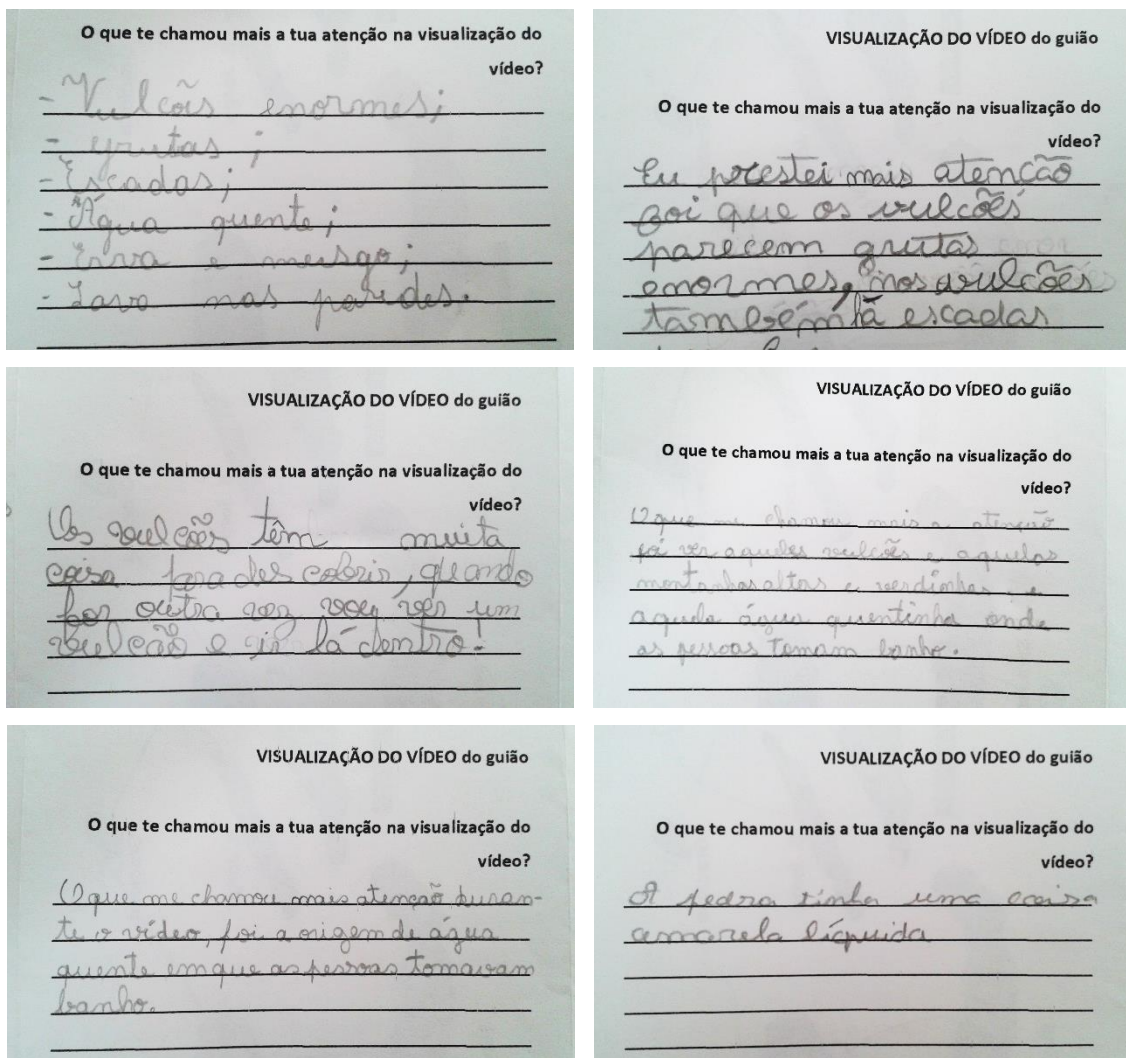 O que te chamou mais a tua atenção na visualização do
vídeo?
- Vulcões enormes;
- grutas;
- Escadas;
- Água quente;
- Erva e musgo;
- Lava nas paredes.
VISUALIZAÇÃO DO VÍDEO do guião
O que te chamou mais a tua atenção na visualização do
vídeo?
Eu prestei mais atenção
foi que os vulcões
parecem grutas
enormes, nos vulcões
também há escadas
VISUALIZAÇÃO DO VÍDEO do guião
O que te chamou mais a tua atenção na visualização do
vídeo?
Os vulcões têm muita
coisa para descobrir, quando
for outra vez vou ver um
vulcão e ir lá dentro!
VISUALIZAÇÃO DO VÍDEO do guião
O que te chamou mais a tua atenção na visualização do
vídeo?
O que me chamou mais a atenção
foi ver aqueles vulcões e aquelas
montanhas altas e verdinhas e
aquela água quentinha onde
as pessoas tomam banho.
VISUALIZAÇÃO DO VÍDEO do guião
O que te chamou mais a tua atenção na visualização do
vídeo?
O que me chamou mais atenção duran-
te o vídeo, foi a origem de água
quente em que as pessoas tomavam
banho.
VISUALIZAÇÃO DO VÍDEO do guião
O que te chamou mais a tua atenção na visualização do
vídeo?
A pedra tinha uma coisa
amarela líquida